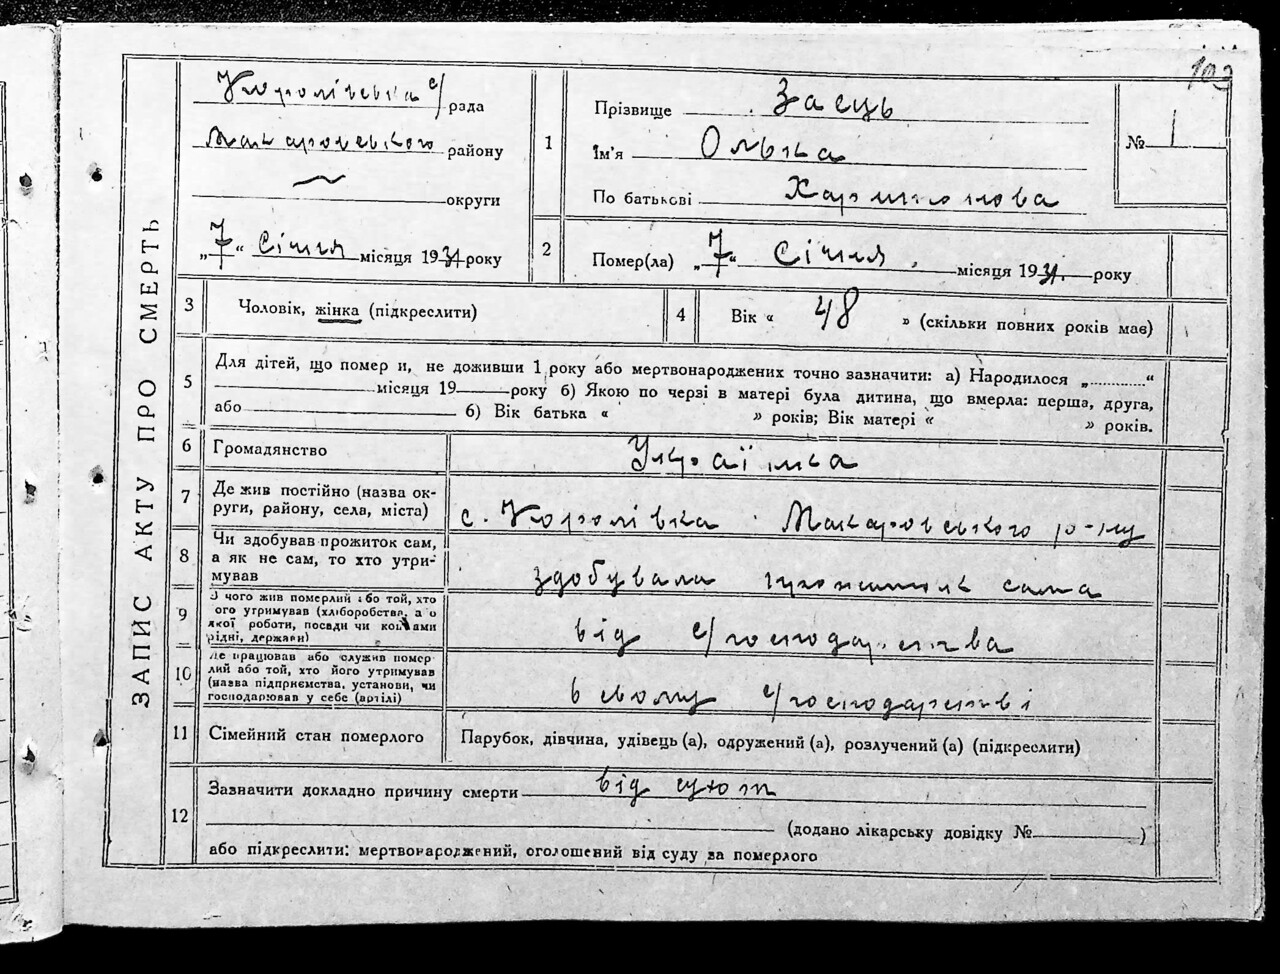 103
ЗАПИС АКТУ ПРО СМЕРТЬ
Королівська с/рада
Макаровського району
округи
„7“ Січня місяця 1931 року
1
Прізвище Заєць
Ім'я Олька
По батькові Харитонова
№ 1
2
Помер(ла) „7“ Січня місяця 1931. року
3
Чоловік, жінка (підкреслити)
4
Вік « 48 » (скільки повних років має)
5
Для дітей, що помер и, не доживши 1 року або мертвонароджених точно зазначити: а) Народилося „............“
місяця 19 року б) Якою по черзі в матері була дитина, що вмерла: перша, друга,
або б) Вік батька « » років; Вік матері « » років.
6
Громадянство
Українка
7
Де жив постійно (назва ок-
руги, району, села, міста)
с. Королівка Макаровського р-ну
8
Чи здобував прожиток сам,
а як не сам, то хто утри-
мував
здобувала сама
9
З чого жив померлий або той, хто
ого утримував (хліборобства, а о
якої роботи, посади чи коштами
рідні, держави)
від с/господарства
10
Де працював або служив помер
лий або той, хто його утримував
(назва підприємства, установи, чи
господарював у себе (артілі)
в свому с/господарстві
11
Сімейний стан померлого
Парубок, дівчина, удівець (а), одружений (а), розлучений (а) (підкреслити)
12
Зазначити докладно причину смерти від сухот
(додано лікарську довідку № )
або підкреслити: мертвонароджений, оголошений від суду за померлого